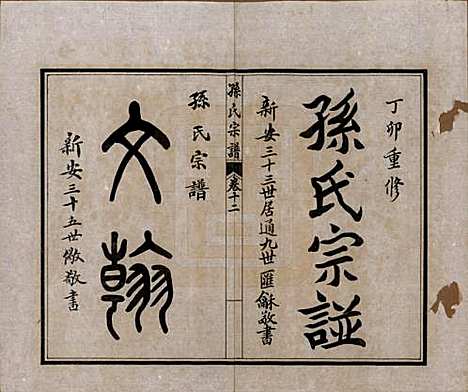 丁卯重修
孫氏宗譜
新安三十三世居通九世匯龢敬書
孫氏宗譜
卷十二
孫氏宗譜
文翰
新安三十五世儆敬書